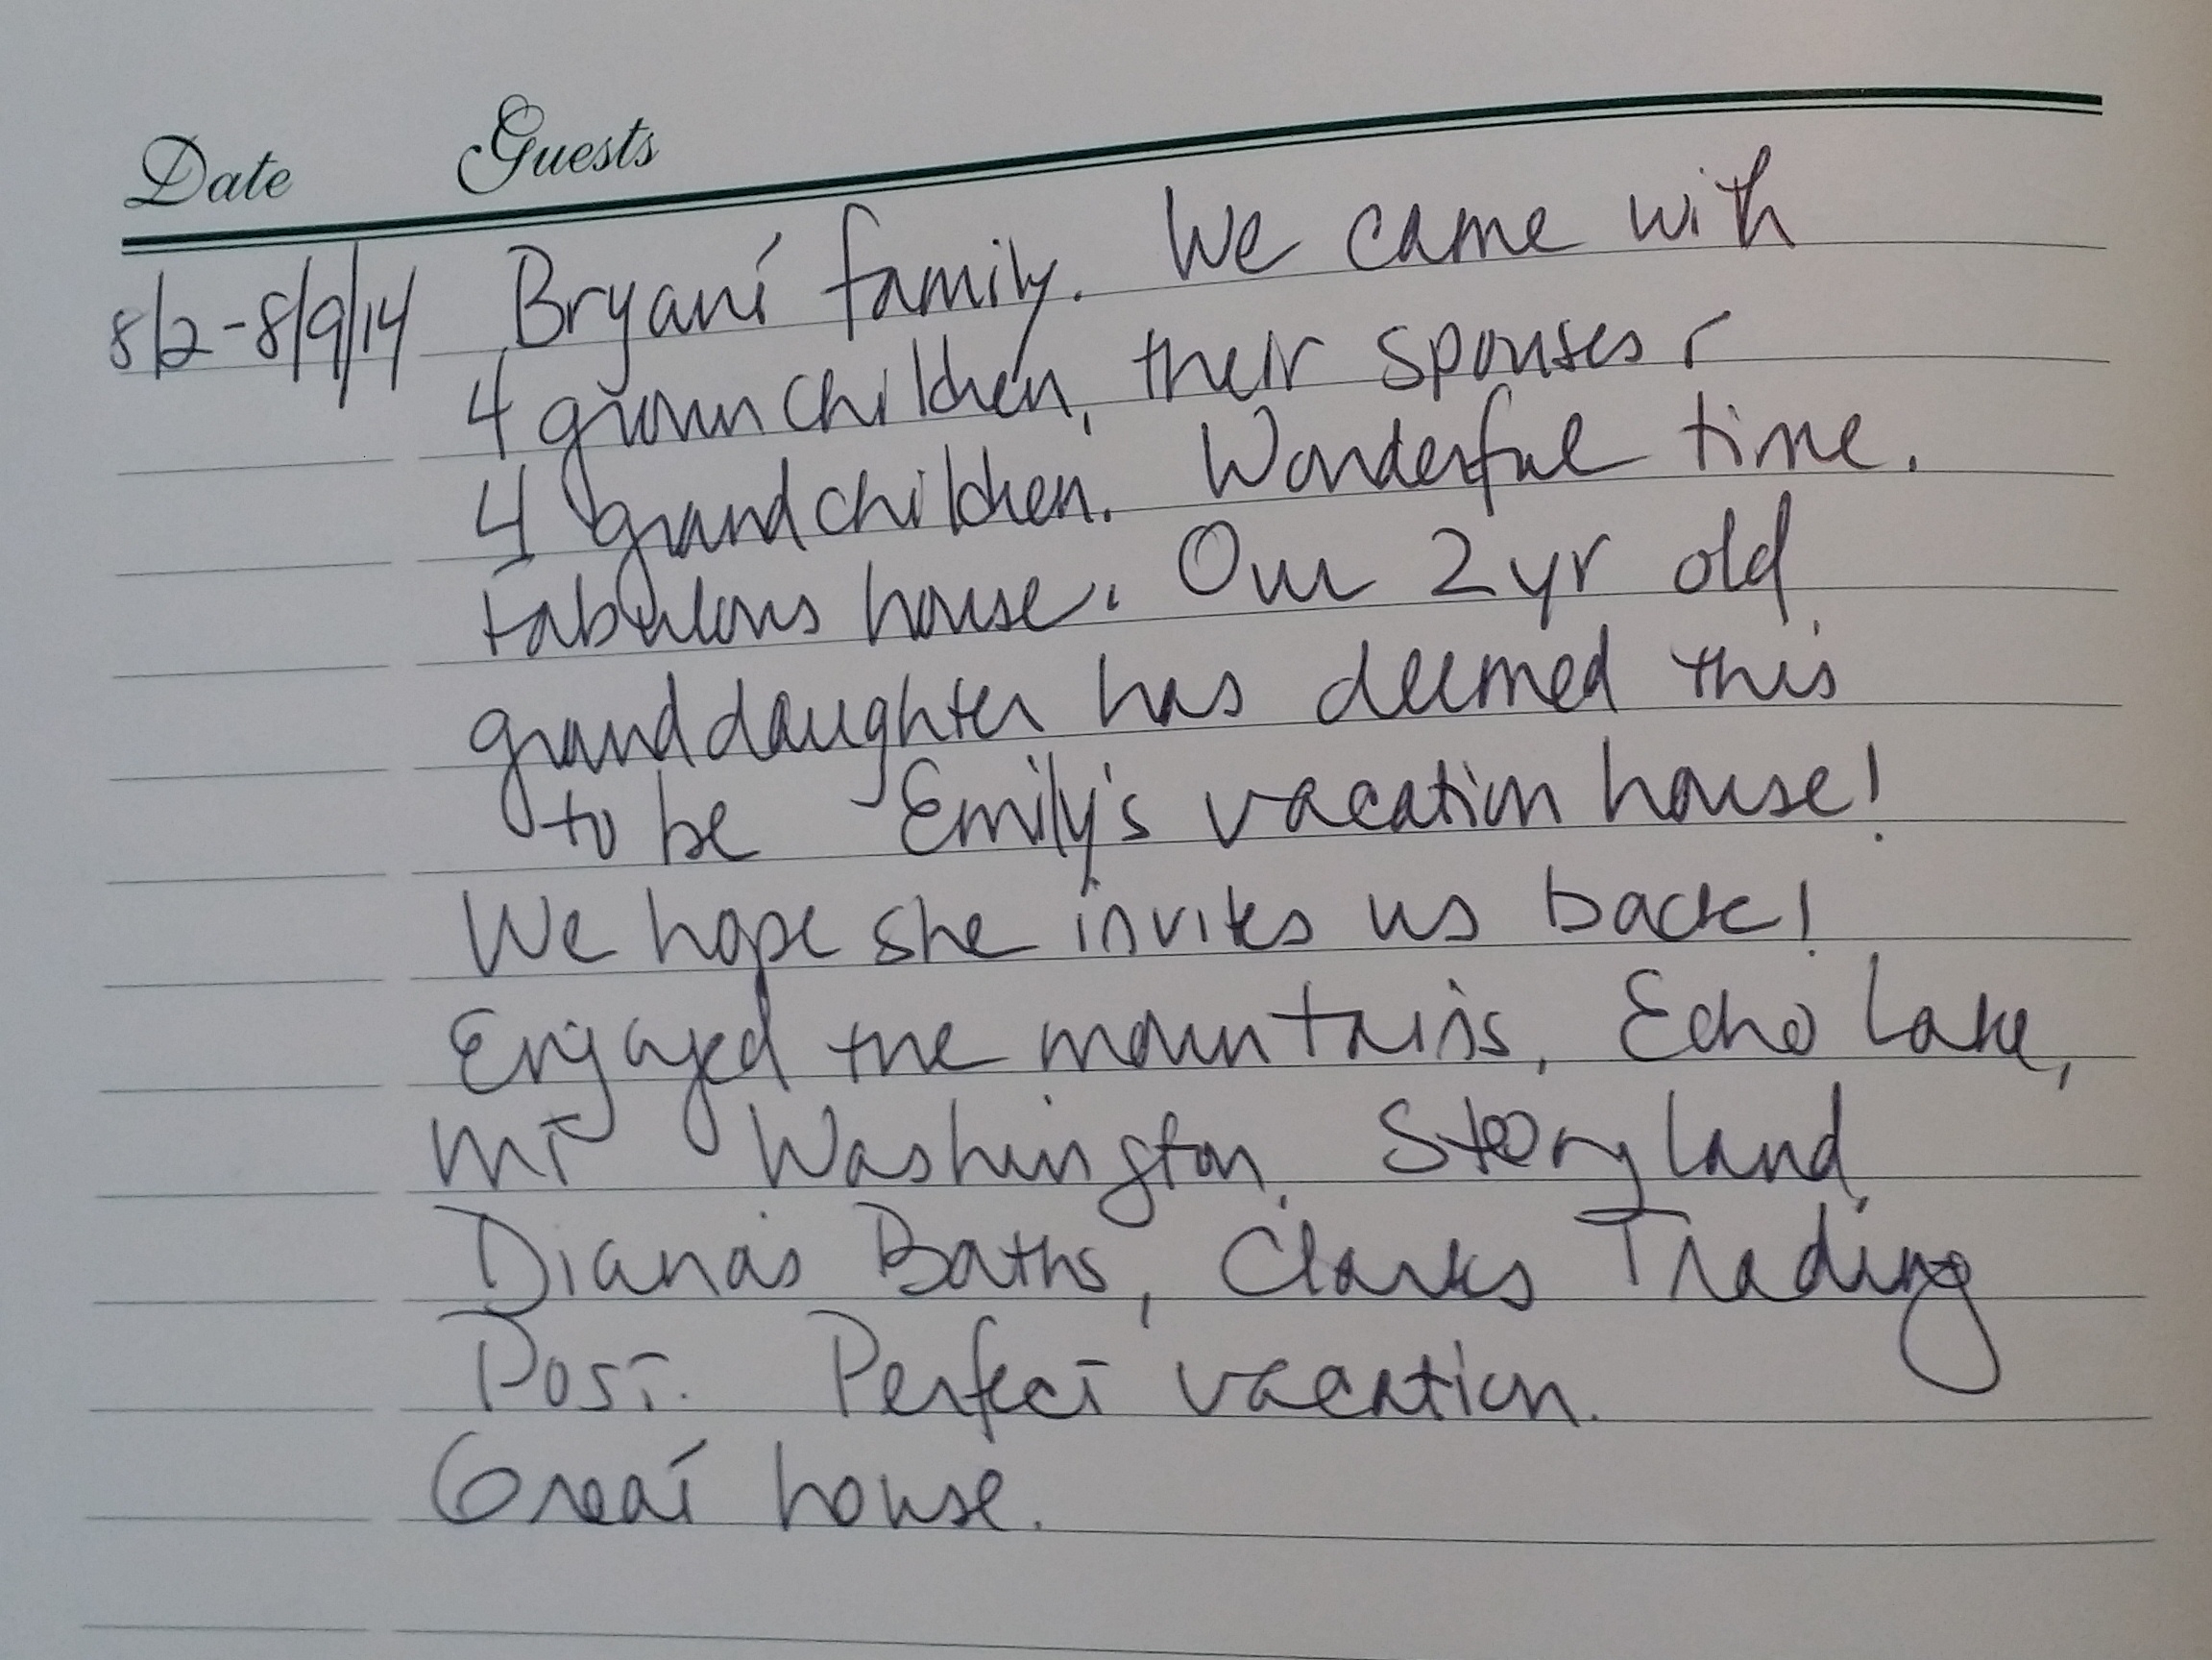 Date Guests
8/2-8/9/14 Bryant family. We came with
4 grown children, their spouses &
4 grandchildren. Wonderful time.
Fabulous house. Our 2 yr old
granddaughter has deemed this
to be Emily's vacation house!
We hope she invites us back!
Enjoyed the mountains, Echo Lake,
Mt Washington, Storyland,
Diana's Baths, Clarks Trading
Post. Perfect vacation.
Great house.